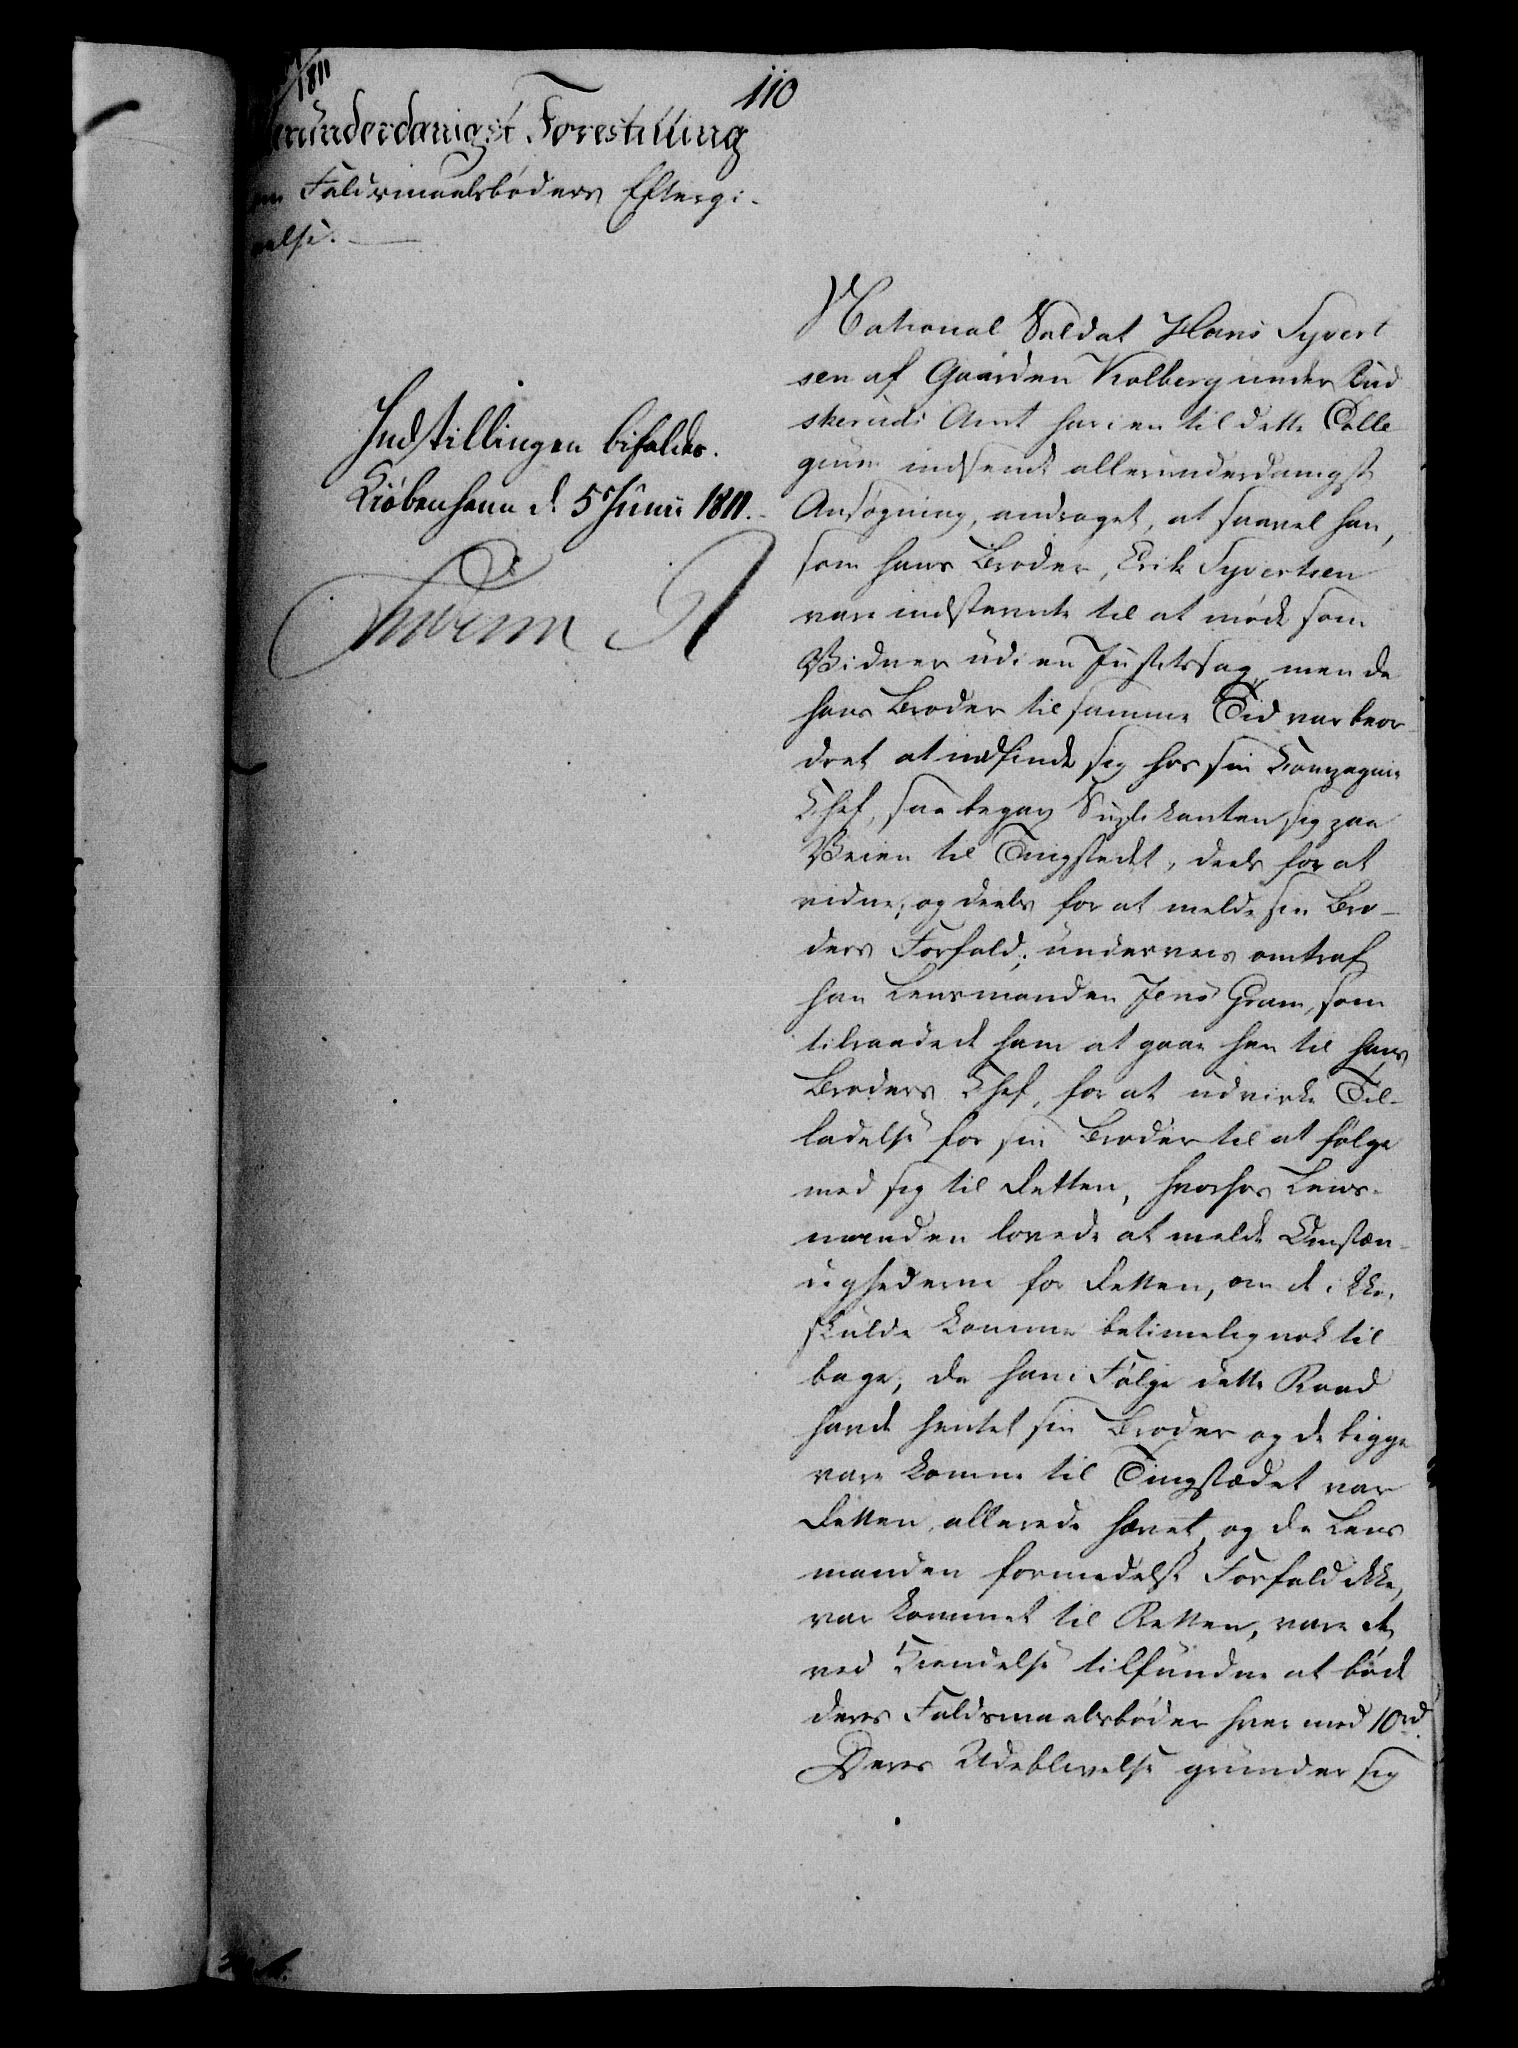 1811
110
underdanigst Forestilling
Faldsmaalsbøders Eftergi-
velse.
Indstillingen bifaldes.
Kiøbenhavn d 5t Junii 1811.
National Soldat Hans Syvert
sen af Gaarden Kolberg under Bud
skeruds Amt har i en til dette Colle
gium indsendt allerunderdanigst
Ansøgning, andraget, at saavel han,
som hans Broder, Erik Syvertsen
vare indstevnte til at møde som
Vidner udi en Justitssag, men da
hans Broder til samme Tid var beor
dret at indfinde sig hos sin Compagnie
Chef, saa begav Suplikanten sig paa
Veien til Tingstedet, deels for at
vidne, og deels for at melde sin Bro-
ders Forfald; underveis omtraf
han Lensmanden Jens Gram, som
tilraadede ham at gaae hen til hans
Broders Chef, for at udvirke Til-
ladelse for sin Broder til at følge
med sig til Retten, hvorhos Lens-
manden lovede at melde Omstæn-
dighederne for Retten, om de ikke
skulde komme betimelig nok til
bage, da han i Følge dette Raad
havde hentet sin Broder og de begge
vare komne til Tingstædet var
Retten allerede hævet, og da Lens
manden formedelst Forfald ikke
var kommet til Retten, vare de
ved Kiendelse tilfundne at bøde
deres Faldsmaalsbøder hver med 10 rd.
Deres Udeblivelse grunder sig